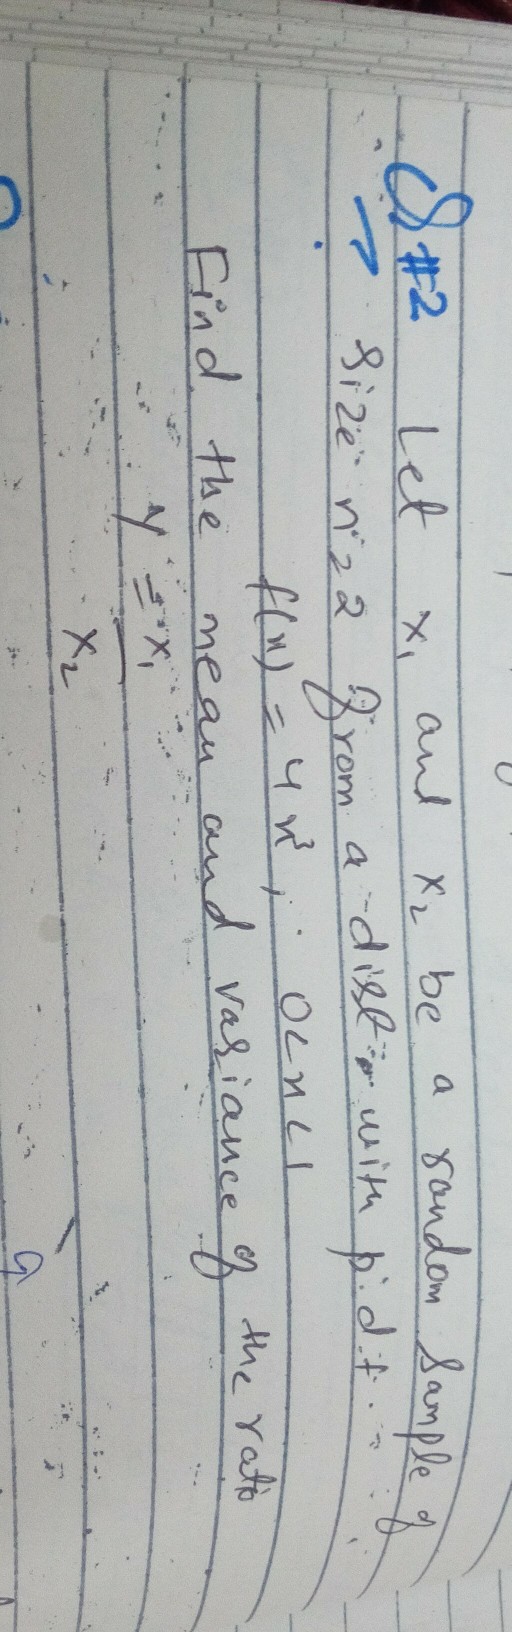 Q #2 Let x₁ and x₂ be a random sample of
size n=2 from a dist: with p.d.f.
f(x) = 4x³, 0<x<1
Find the mean and variance of the ratio
y = x₁
x₂